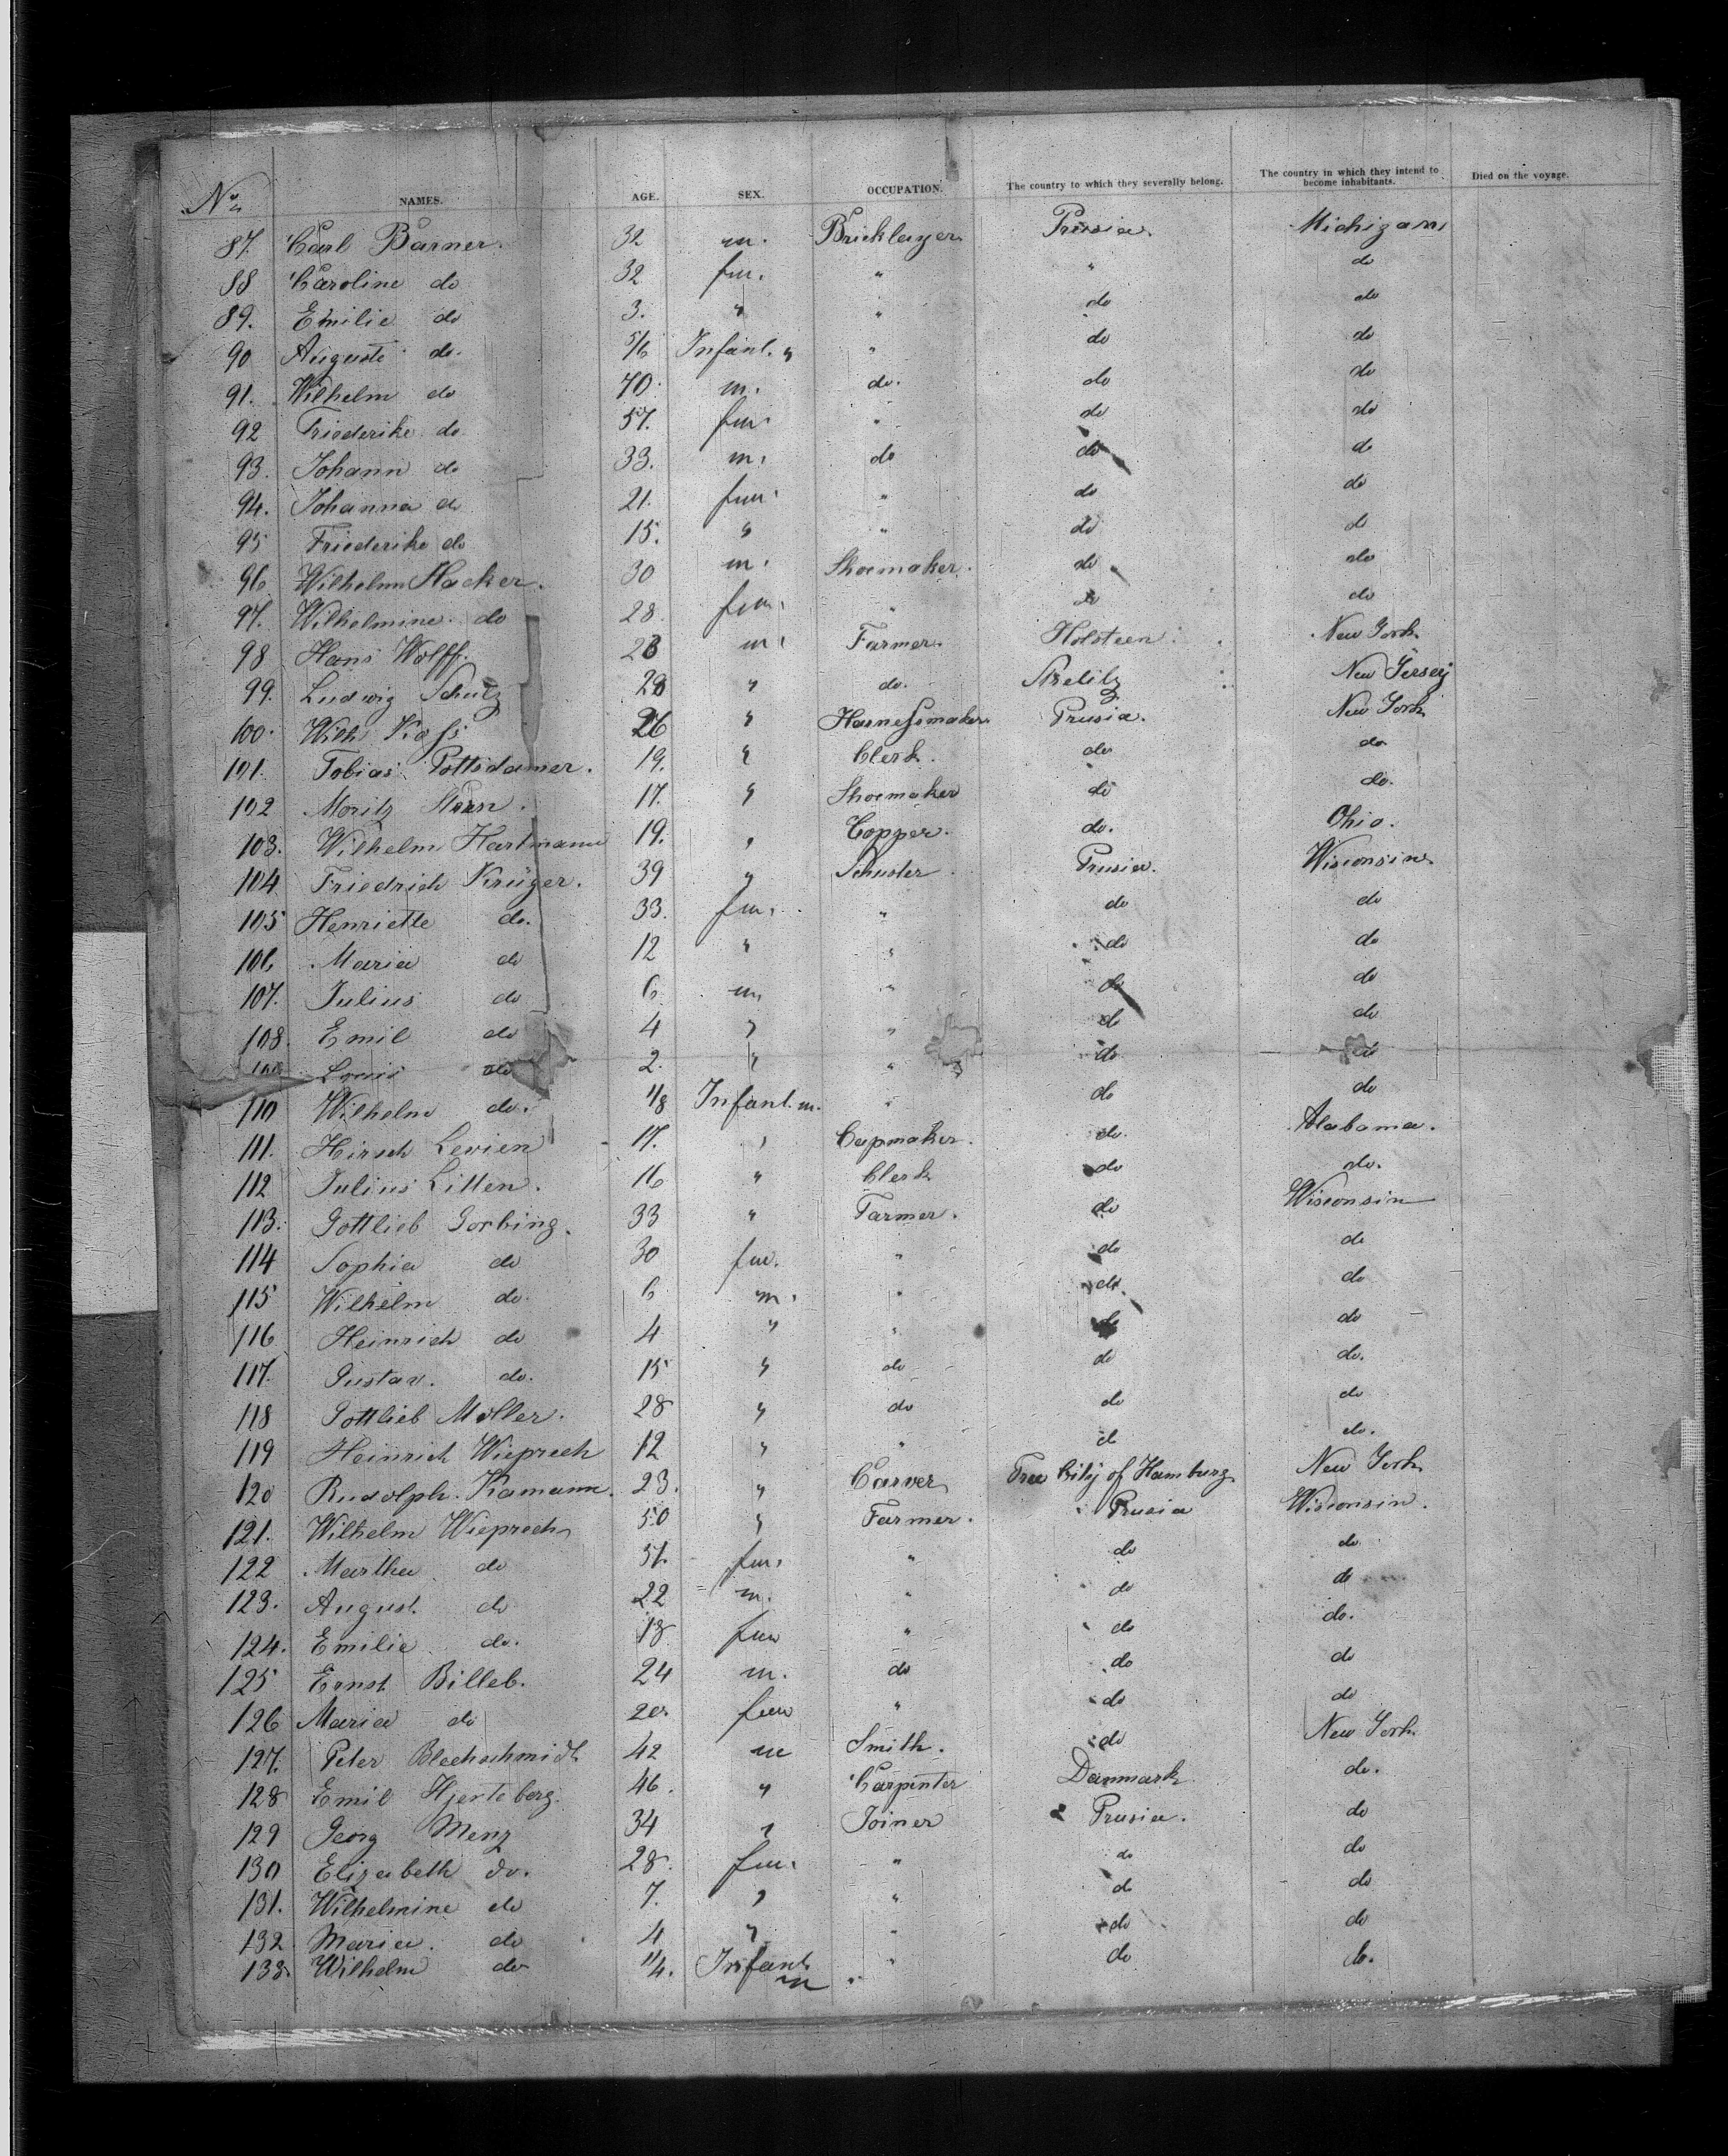 No. NAMES. AGE. SEX. OCCUPATION. The country to which they severally belong. The country in which they intend to become inhabitants. Died on the voyage.
87. Carl Barner. 32 m. Bricklayer Prusia. Michigan
88 Caroline do 32 fm. " " do
89. Emilie do 3. " " do do
90 Auguste do. 5/6 Infant. " " do do
91. Wilhelm do 70. m. do. do do
92 Friederike do. 57. fm. " do do
93. Johann do 33. m. do do do
94. Johanna do 21. fm. " do do
95 Friederike do 15. " " do do
96 Wilhelm Hacker. 30 m. Shoemaker. do do
97. Wilhelmine do 28. fm. " do do
98 Hans Wolff. 23 m. Farmer. Holsteen New York
99. Ludwig Schulz 28 " do. Strelitz New Jersey
100. Wilh. Kofs 26 " Harnefsmaker Prusia. New York
101. Tobias Pottsdamer. 19. " Clerk. do do
102 Moritz Stern. 17. " Shoemaker do do.
103. Wilhelm Hartmann 19. " Copper. do. Ohio.
104 Friedrich Krüger. 39 " Schuster Prusia. Wisconsin
105 Henriette do. 33. fm. " do do
106 Maria do 12 " " do do
107. Julius do 6 m. " do do
108. Emil do 4 " " do do
109 Louis do 2. " " do do
110 Wilhelm do. 11/8 Infant. m. " do do
111. Hirsch Levien 17. " Capmaker. do. Alabama.
112 Julius Litten. 16 " Clerk do do.
113. Gottlieb Gorbing. 33 " Farmer. do Wisconsin
114 Sophia do 30 fm. " do do
115 Wilhelm do. 6 m. " do. do
116 Heinrich do 4 " " do do
117. Gustav. do. 15 " do do do.
118 Gottlieb Moller. 28 " do do do
119 Heinrich Wieprech 12 " " do do.
120 Rudolph. Kamann. 23. " Carver Free City of Hamburg New York
121. Wilhelm Wieprech 50 " Farmer. Prusia Wisconsin.
122 Martha do 51. fm. " do do
123. August. do 22 m. " do do
124. Emilie do. 18 fm " do do.
125 Ernst Billeb. 24 m. do do do
126 Maria do 20. fm " do do
127. Peter Blechschmidt 42 m Smith. do New York
128 Emil Hjerteberg. 46. " Carpenter Danmark do.
129 Georg Menz 34 " Joiner Prusia. do
130 Elizabeth do. 28. fm. " do do
131. Wilhelmine do 7. " " do do
132 Maria. do 4 " " do do
133. Wilhelm do 11/4. Infant m " do do.